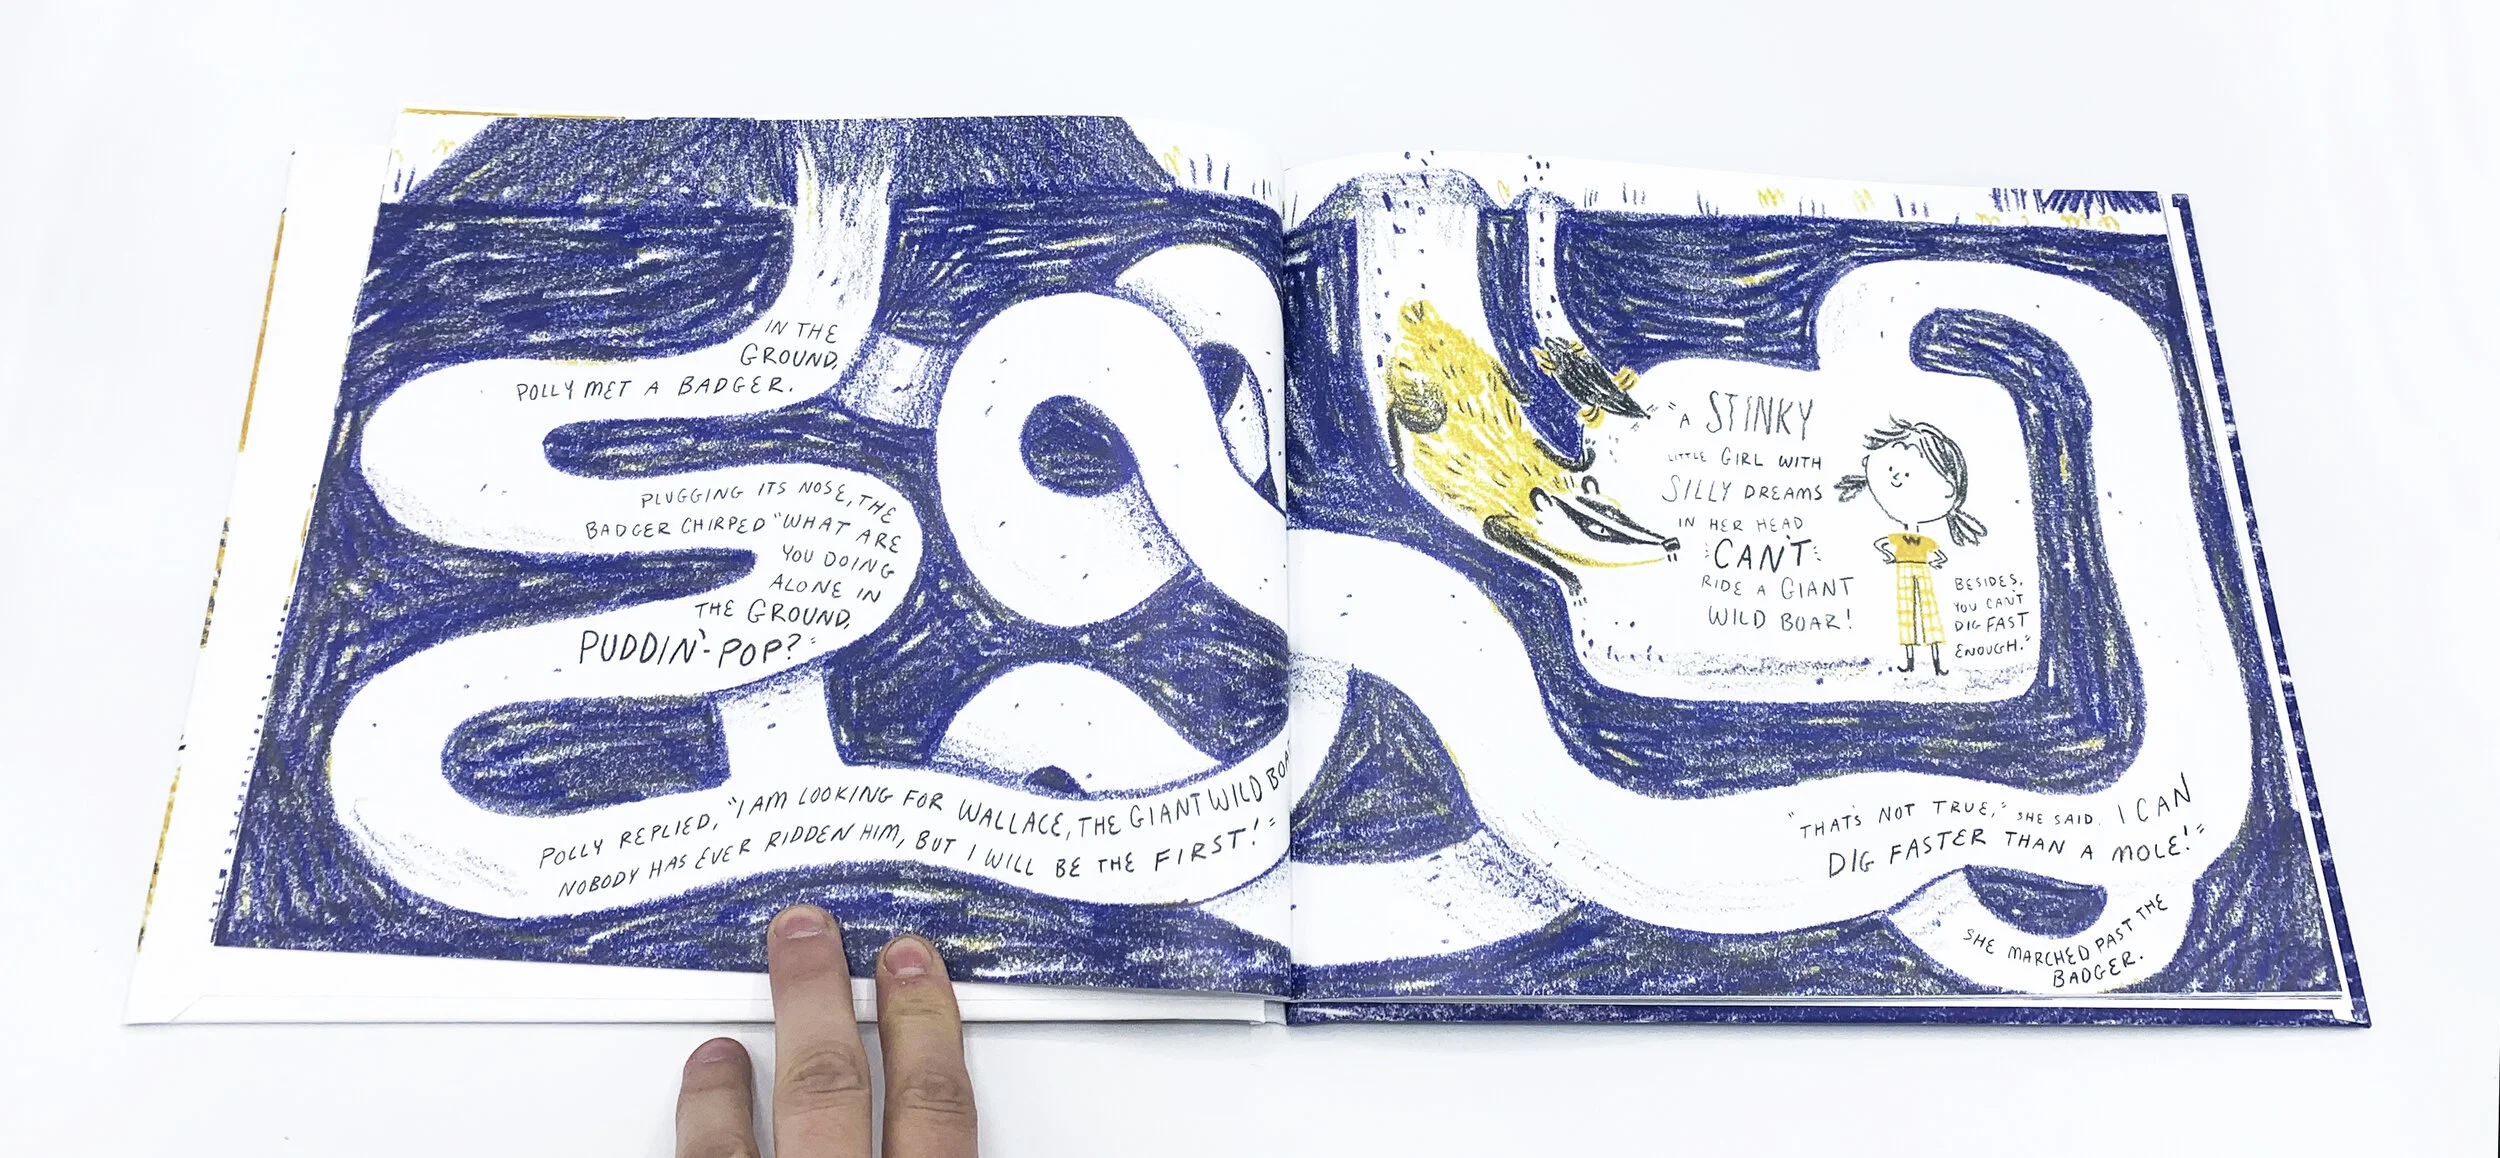 IN THE
GROUND,
POLLY MET A BADGER.
PLUGGING ITS NOSE, THE
BADGER CHIRPED "WHAT ARE
YOU DOING
ALONE IN
THE GROUND,
PUDDIN'-POP?"
POLLY REPLIED, "I AM LOOKING FOR WALLACE, THE GIANT WILD
NOBODY HAS EVER RIDDEN HIM, BUT I WILL BE THE FIRST!"
"A STINKY
LITTLE GIRL WITH
SILLY DREAMS
IN HER HEAD
CAN'T
RIDE A GIANT
WILD BOAR!
BESIDES,
YOU CAN'T
DIG FAST
ENOUGH."
"THAT'S NOT TRUE," SHE SAID. I CAN
DIG FASTER THAN A MOLE!"
SHE MARCHED PAST THE
BADGER.